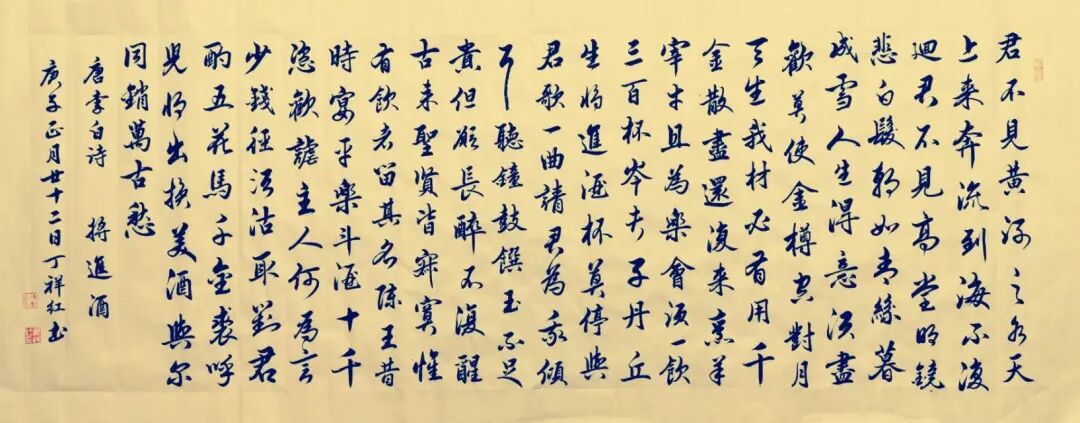 君不見黃河之水天
上来奔流到海不復
迴君不見高堂明鏡
悲白髮朝如青絲暮
成雪人生得意須盡
歡莫使金樽空對月
天生我材必有用千
金散盡還復来烹羊
宰牛且為樂會須一飲
三百杯岑夫子丹丘
生將進酒杯莫停與
君歌一曲請君為我傾
耳聽鐘鼓饌玉不足
貴但願長醉不復醒
古来聖賢皆寂寞惟
有飲者留其名陳王昔
時宴平樂斗酒十千
恣歡謔主人何為言
少錢徑須沽取對君
酌五花馬千金裘呼
兒將出換美酒與爾
同銷萬古愁
唐李白诗 將進酒
庚子正月廿十二日丁祥红书